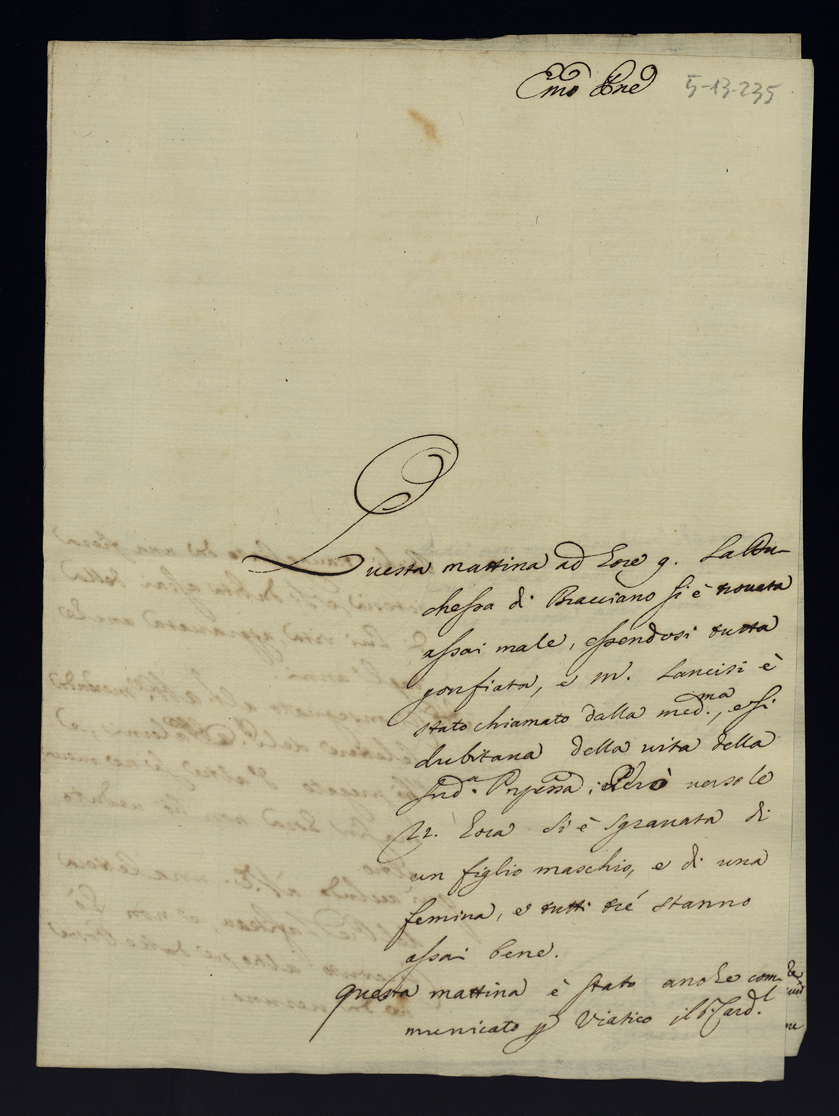 Emo Pne 5-13-235
Questa mattina ad hore 9. La Du-
chessa di Bracciano si è trouata
assai male, essendosi tutta
gonfiata, e m. Lancisi è
stato chiamato dalla med.ma, e si
dubitaua della uita della
sud.a Pnpessa; Però uerso le
22. hora si è sgrauata di
un figlio maschio, e di una
femina, e tutti tré stanno
assai bene.
questa mattina è stato anche com-
municato p Viatico il S. Card.l